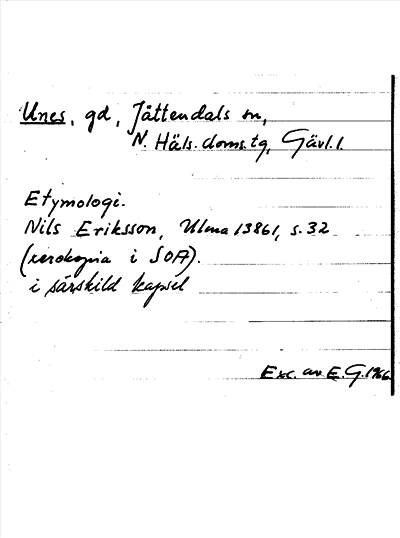 Unes, gd, Jättendals sn,
N. Häls. doms.tg, Gävl.l.
Etymologi.
Nils Eriksson, Ulma 13861, s. 32
(xerokopia i SOA).
i särskild kapsel
Exc. av E. G. 1966